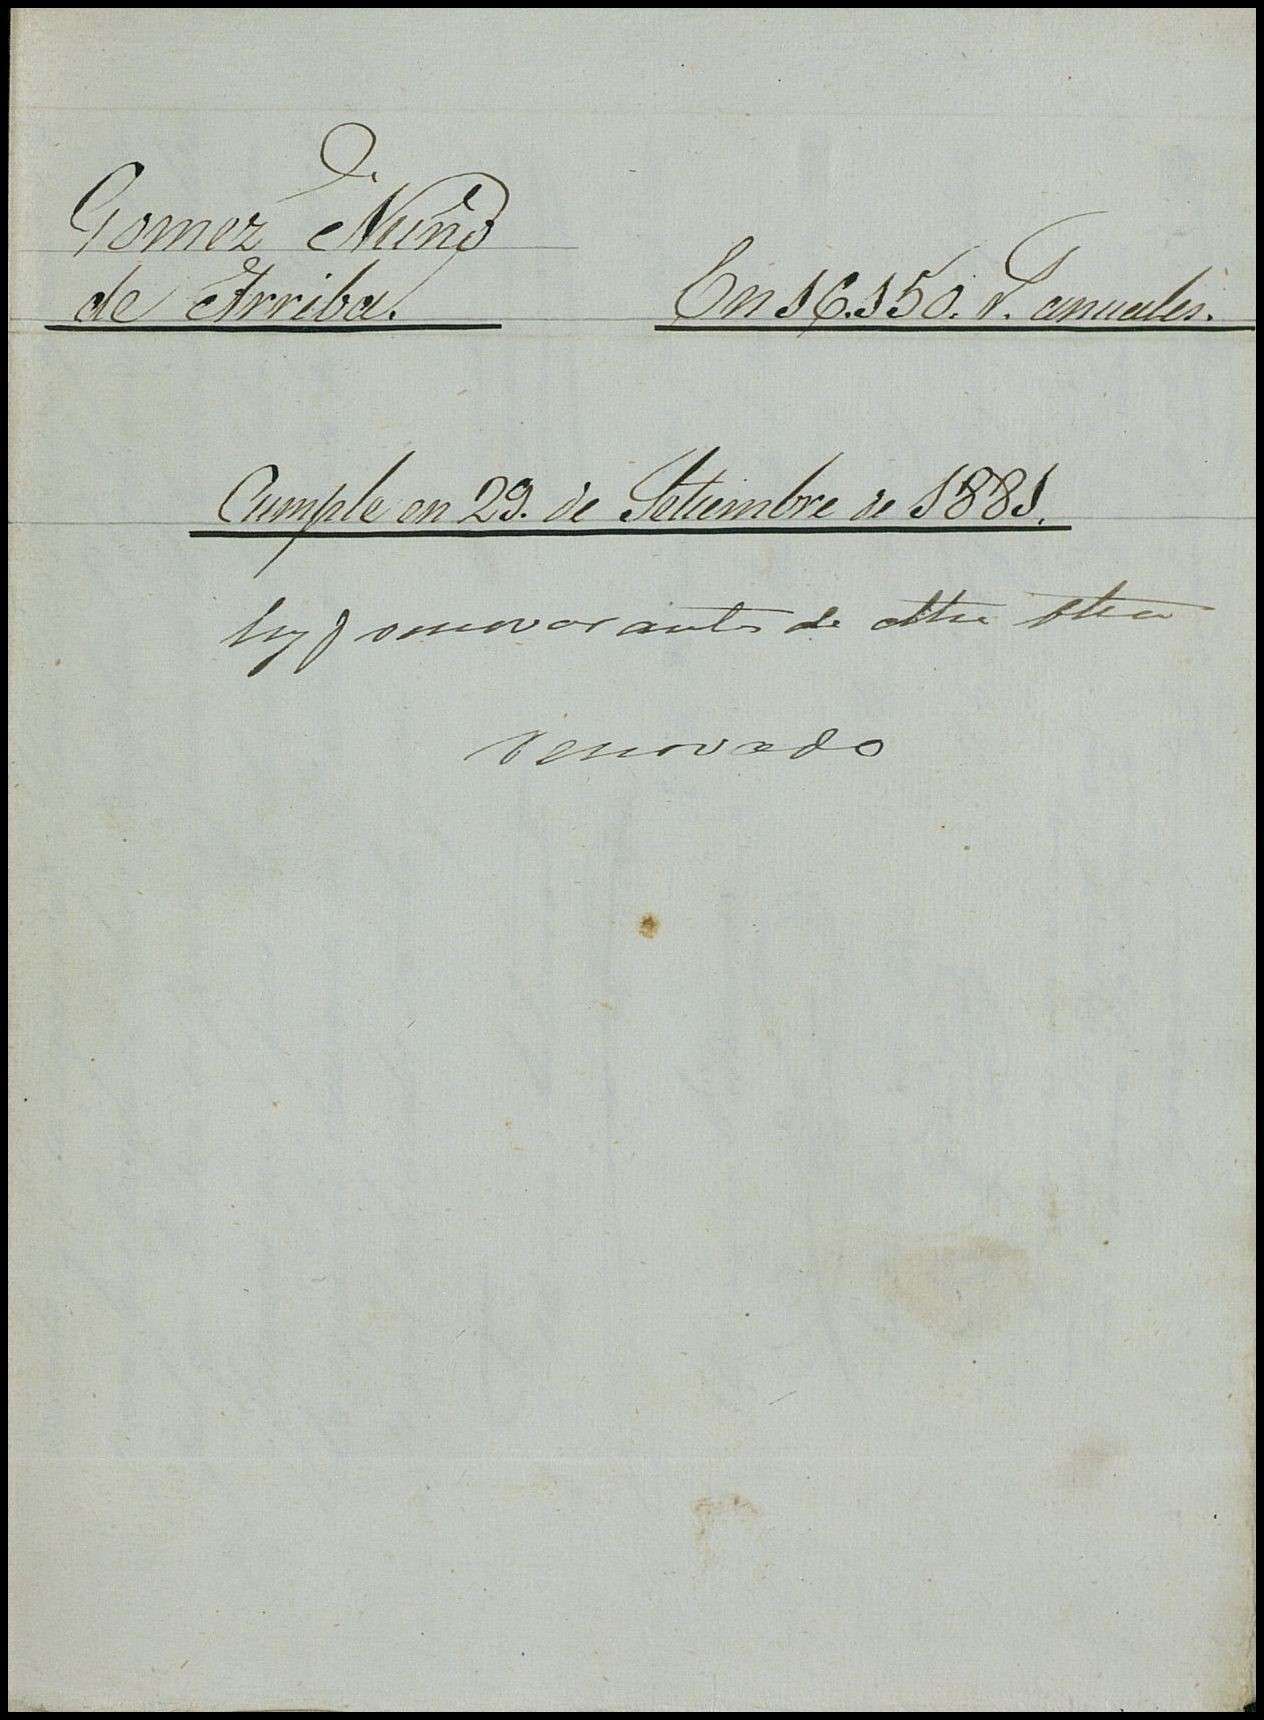 Gomez Nuño
de Arriba.
En 16.150. r. anuales.
Cumple en 29. de Setiembre de 1881.
renovar antes de otra
renovado